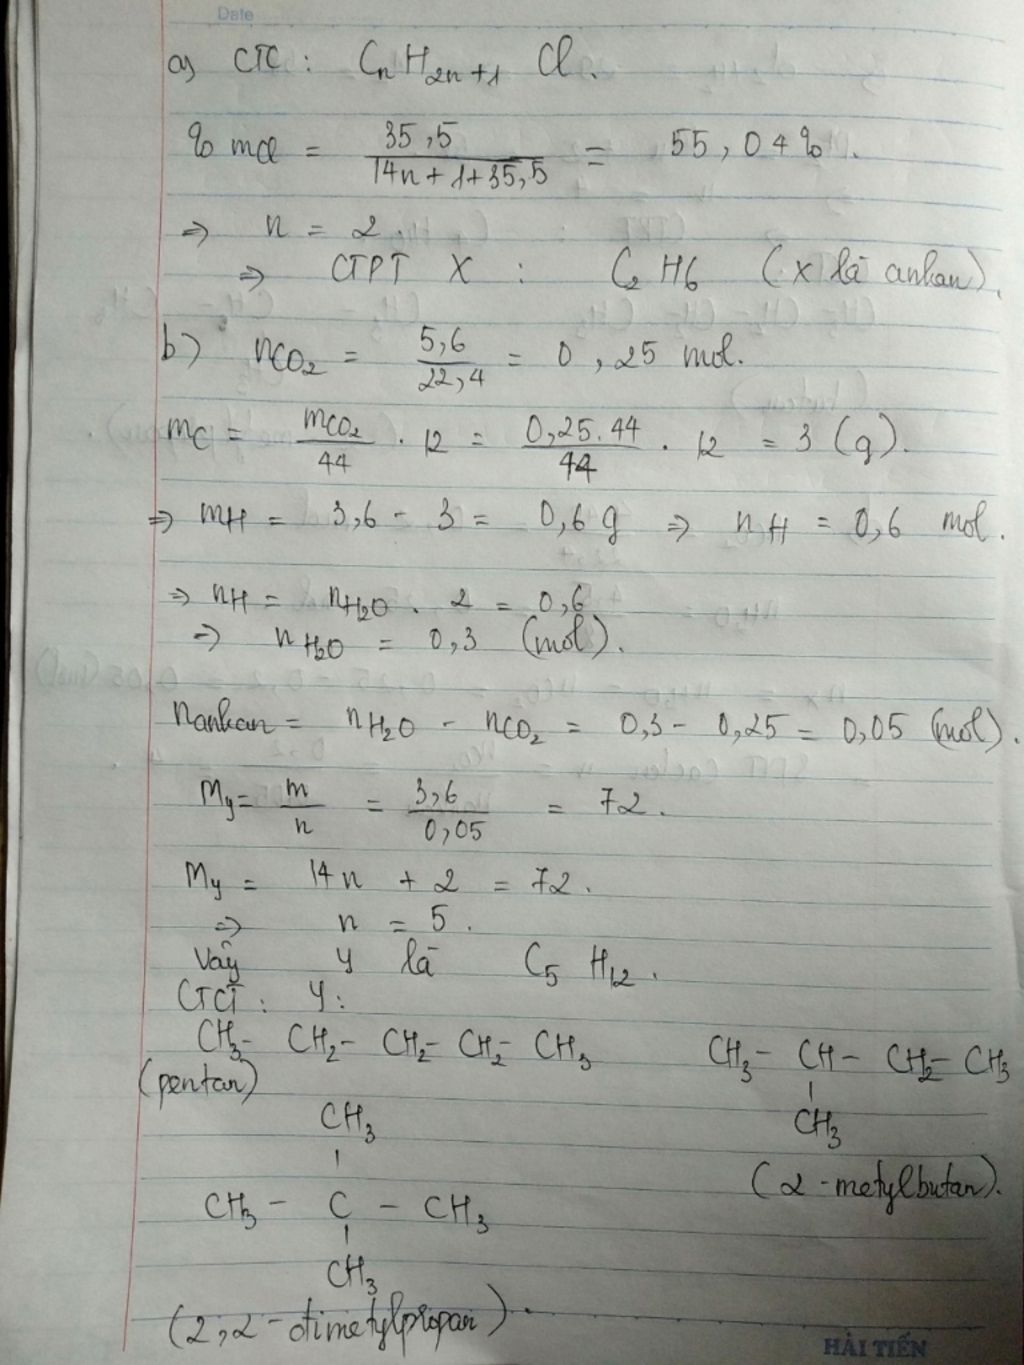 Date
a) CTC : CnH2n+1 Cl.
% mCl = 35,5 / 14n+1+35,5 = 55,04%.
=> n = 2.
=> CTPT X : C2H6 (X là ankan).
b) nCO2 = 5,6 / 22,4 = 0,25 mol.
mC = mCO2 / 44 . 12 = 0,25.44 / 44 . 12 = 3 (g).
=> mH = 3,6 - 3 = 0,6 g => nH = 0,6 mol.
=> nH = nH2O . 2 = 0,6
=> nH2O = 0,3 (mol).
nankan = nH2O - nCO2 = 0,3 - 0,25 = 0,05 (mol).
My = m / n = 3,6 / 0,05 = 72.
My = 14n + 2 = 72.
=> n = 5.
Vậy Y là C5H12.
CTCT : Y :
CH3- CH2- CH2- CH2- CH3 CH3- CH- CH2- CH3
(pentan) CH3
(2-metylbutan).
CH3
CH3 - C - CH3
CH3
(2,2-đimetylpropan).
HẢI TIẾN